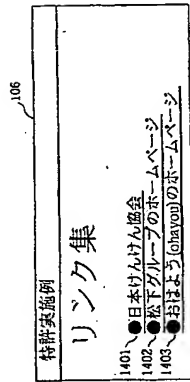 106
特許実施例
リンク集
1401 ●日本けんけん協会
1402 ●松下グループのホームページ
1403 ●おはよう(ohayou)のホームページ